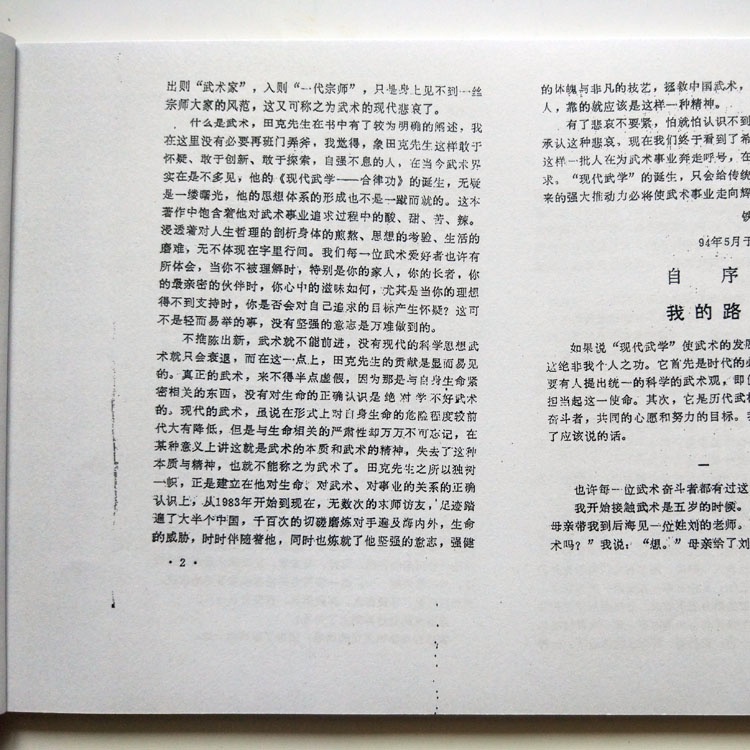 出则“武术家”，入则“一代宗师”，只是身上见不到一丝
宗师大家的风范，这又可称之为武术的现代悲哀了。
什么是武术，田克先生在书中有了较为明确的阐述，我
在这里没有必要再班门弄斧，我觉得，象田克先生这样敢于
怀疑、敢于创新、敢于探索，自强不息的人，在当今武术界
实在是不多见，他的《现代武学——合律功》的诞生，无疑
是一缕曙光，他的思想体系的形成也不是一蹴而就的。这本
著作中饱含着他对武术事业追求过程中的酸、甜、苦、辣。
浸透着对人生哲理的剖析身体的煎熬、思想的考验、生活的
磨难，无不体现在字里行间。我们每一位武术爱好者也许有
所体会，当你不被理解时，特别是你的家人，你的长者，你
的最亲密的伙伴时，你心中的滋味如何，尤其是当你的理想
得不到支持时，你是否会对自己追求的目标产生怀疑？这可
不是轻而易举的事，没有坚强的意志是万难做到的。
不推陈出新，武术就不能前进，没有现代的科学思想武
术就只会衰退，而在这一点上，田克先生的贡献是显而易见
的。真正的武术，来不得半点虚假，因为那是与自身生命紧
密相关的东西，没有对生命的正确认识是绝对学不好武术
的。现代的武术，虽说在形式上对自身生命的危险程度较前
代大有降低，但是与生命相关的严肃性却万万不可忘记，在
某种意义上讲这就是武术的本质和武术的精神，失去了这种
本质与精神，也就不能称之为武术了。田克先生之所以独树
一帜，正是建立在他对生命、对武术、对事业的关系的正确
认识上，从1983年开始到现在，无数次的求师访友，足迹踏
遍了大半个中国，千百次的切磋磨炼对手遍及海内外，生命
的威胁，时时伴随着他，同时也炼就了他坚强的意志，强健
·2·
的体魄与非凡的技艺，拯救中国武术，
人，靠的就应该是这样一种精神。
有了悲哀不要紧，怕就怕认识不到
承认这种悲哀、现在我们终于看到了希
这样一批人在为武术事业奔走呼号，在
求。“现代武学”的诞生，只会给传统
来的强大推动力必将使武术事业走向辉
94年5月于
自 序
我的路
如果说“现代武学”使武术的发展
这绝非我个人之功。它首先是时代的必
要有人提出统一的科学的武术观，即使
担当起这一使命。其次，它是历代武术
奋斗者，共同的心愿和努力的目标。我
了应该说的话。
一
也许每一位武术奋斗者都有过这
我开始接触武术是五岁的时候。
母亲带我到后海见一位姓刘的老师。
术吗？”我说：“想。”母亲给了刘